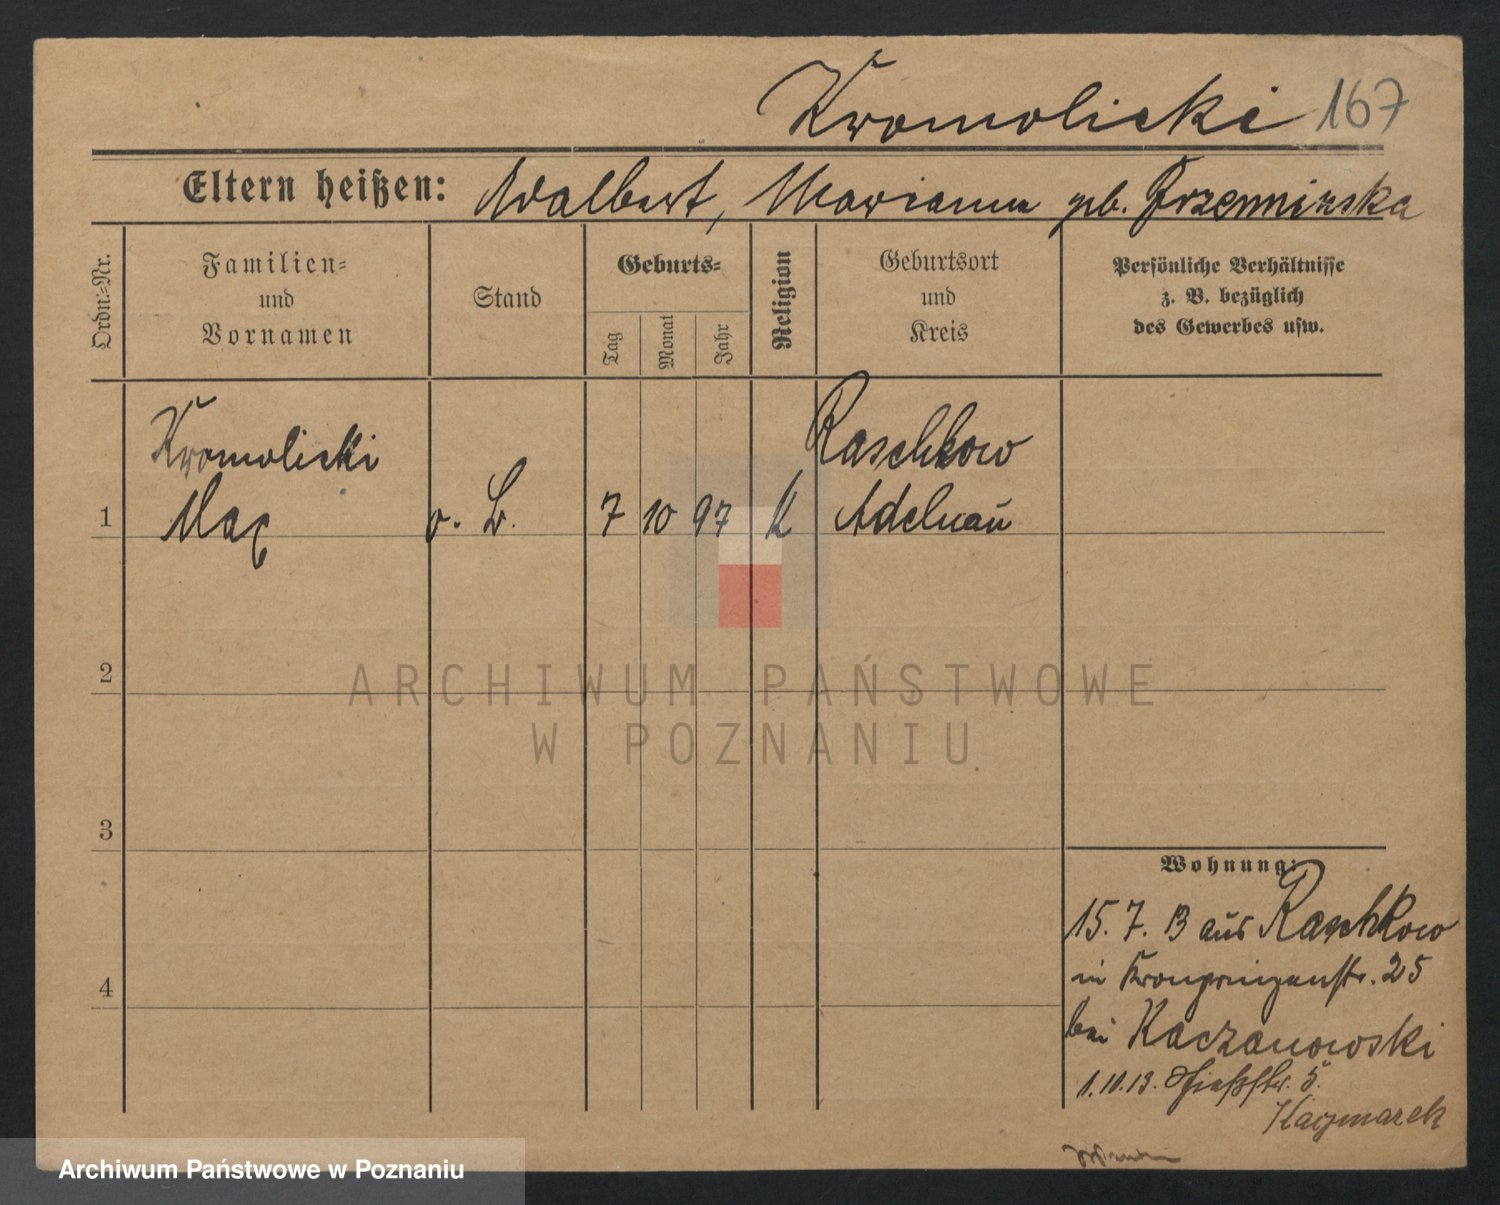 Kromolicki 167
Eltern heißen: Adalbert, Marianna geb. Brzezninska
Ordn.-Nr.
Familien-
und
Vornamen
Stand
Geburts-
Tag
Monat
Jahr
Religion
Geburtsort
und
Kreis
Persönliche Verhältnisse
z. B. bezüglich
des Gewerbes usw.
Kromolicki Raschkow
1 Max o. B. 7 10 97 K Adelnau
2
ARCHIWUM PAŃSTWOWE
W POZNANIU
3
Wohnung:
15. 7. 13 aus Raschkow
4
in Kronprinzenstr. 25
bei Kaczanowski
1.10.13. 5.
Kaczmarek
Archiwum Państwowe w Poznaniu